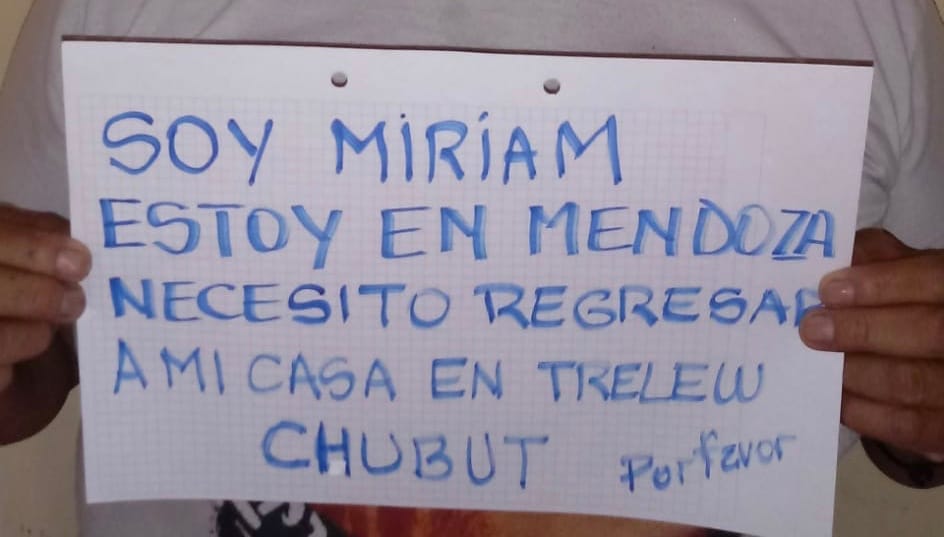 SOY MIRIAM
ESTOY EN MENDOZA
NECESITO REGRESAR
A MI CASA EN TRELEW
CHUBUT Por favor